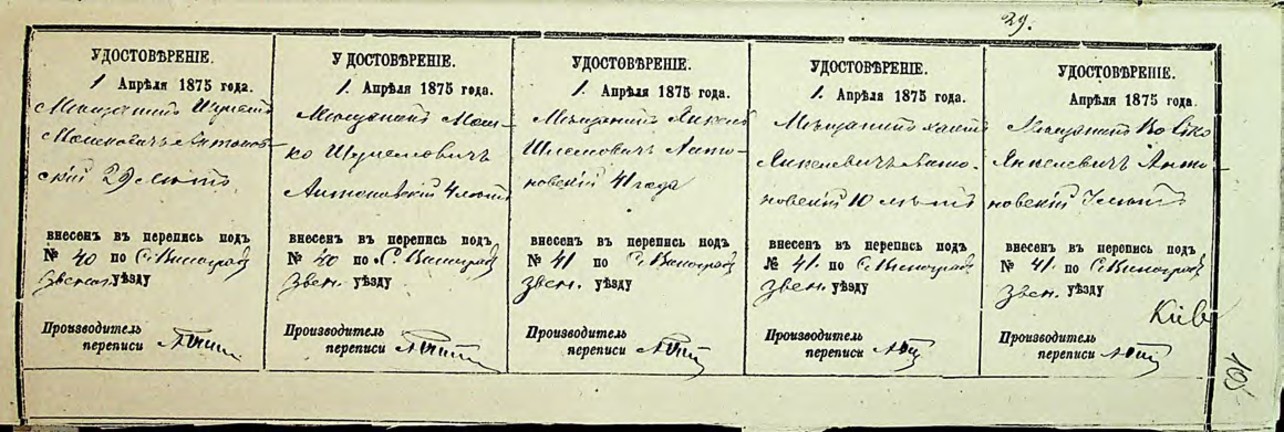 29.
УДОСТОВѢРЕНІЕ.
1 Апрѣля 1875 года.
Мѣщанинъ
Мошковичъ Антонов-
скій 29 лѣтъ
внесенъ въ перепись подъ
№ 40 по С. Виноградъ
Звен. уѣзду
Производитель
переписи
У ДОСТОВѢРЕНІЕ.
1. Апрѣля 1875 года.
Мѣщанинъ Мош-
ко
Антоновскій 4 лѣтъ
внесенъ въ перепись подъ
№ 40 по С. Виноградъ
Звен. уѣзду
Производитель
переписи
УДОСТОВѢРЕНІЕ.
1. Апрѣля 1875 года.
Мѣщанинъ Янкель
Шлемовичъ Анто-
новскій 41 года
внесенъ въ перепись подъ
№ 41 по С. Виноградъ
Звен. уѣзду
Производитель
переписи
УДОСТОВѢРЕНІЕ.
1. Апрѣля 1875 года.
Мѣщанинъ
Янкелевичъ Анто-
новскій 10 лѣтъ
внесенъ въ перепись подъ
№ 41. по С. Виноградъ
Звен. уѣзду
Производитель
переписи
УДОСТОВѢРЕНІЕ.
Апрѣля 1875 года.
Мѣщанинъ Волько
Янкелевичъ Анто-
новскій 7 лѣтъ
внесенъ въ перепись подъ
№ 41. по С. Виноградъ
Звен. уѣзду
Производитель
переписи
105